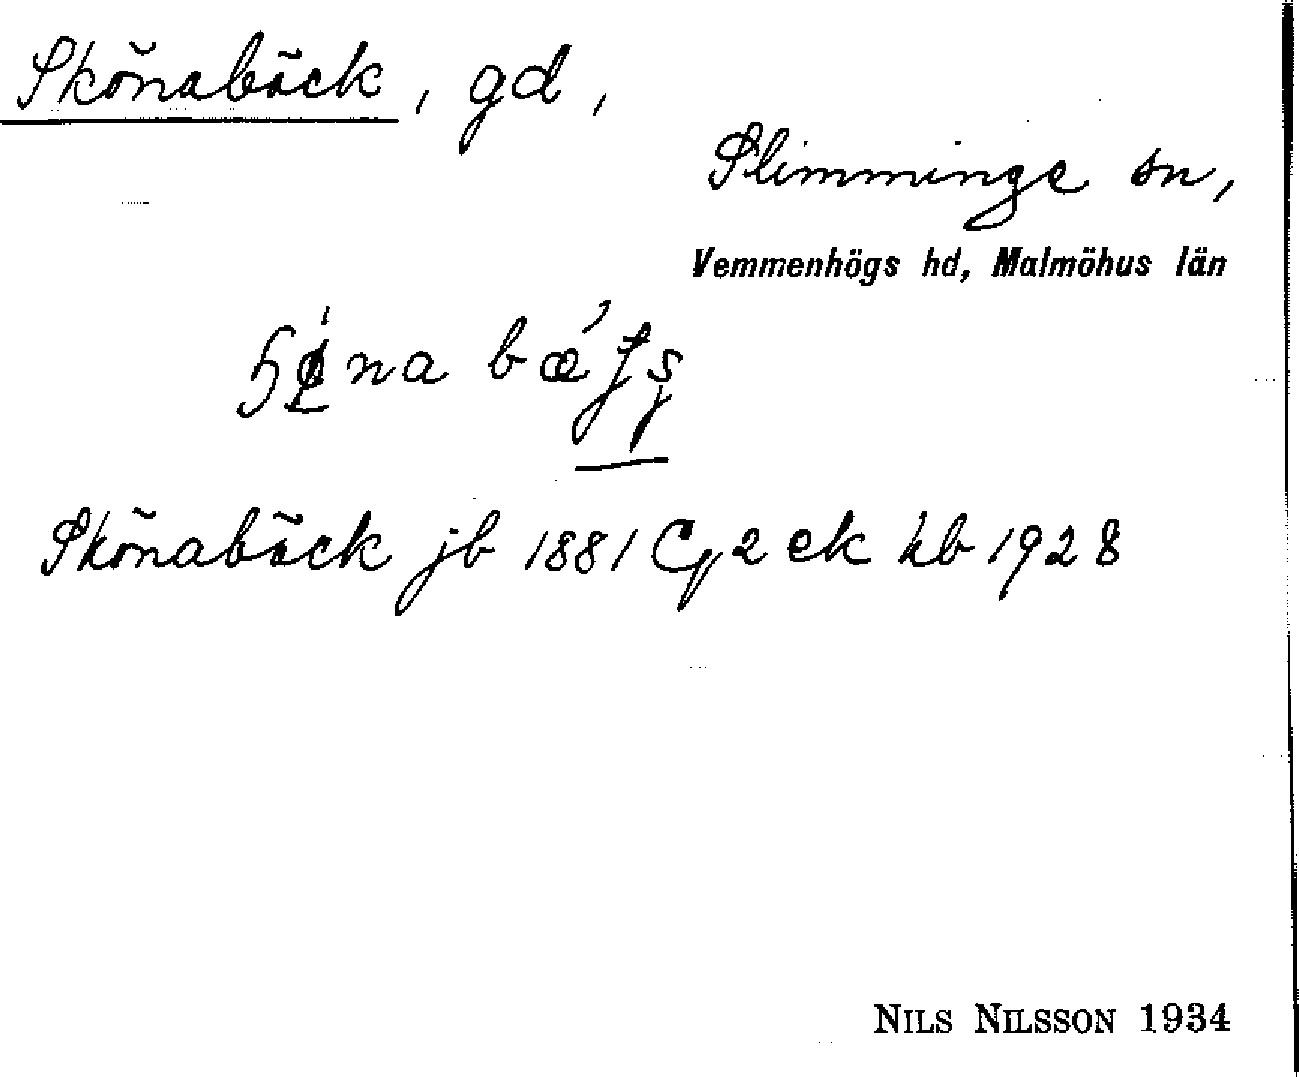 Skönabäck, gd,
Slimminge sn,
Vemmenhögs hd, Malmöhus län
Skönabäck jb 1881 C, 2 ek kb 1928
NILS NILSSON 1934